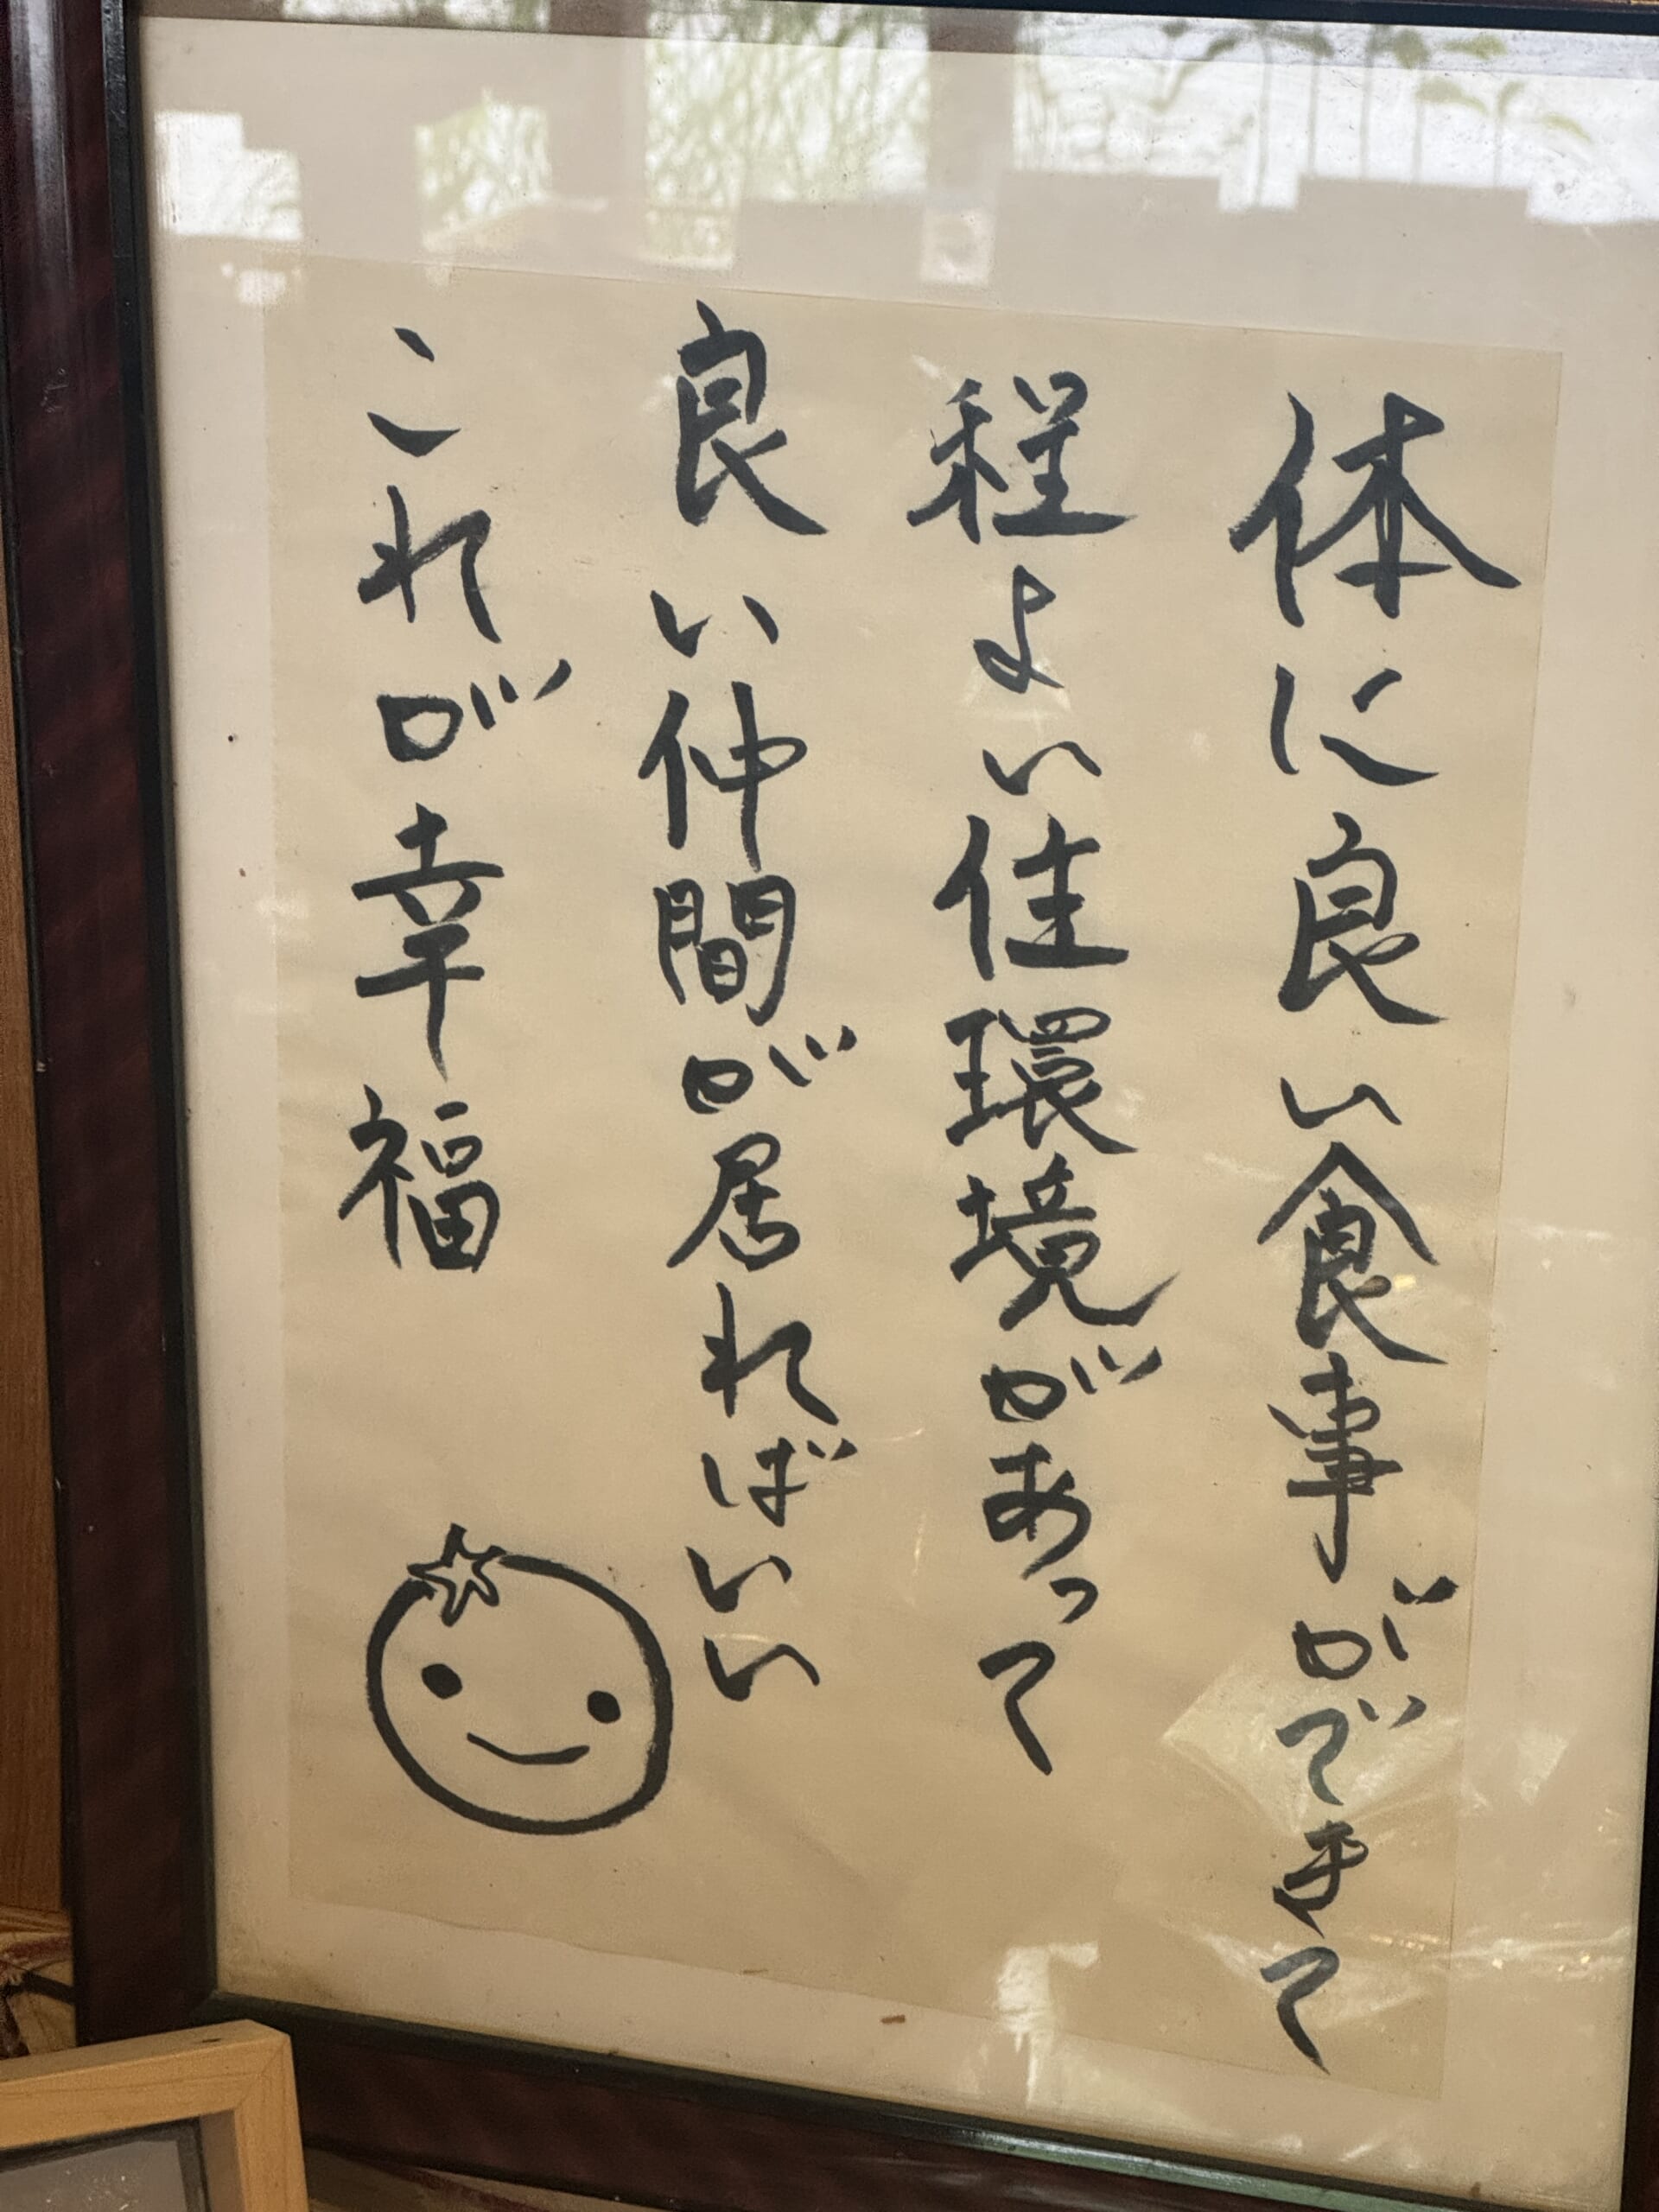 体に良い食事ができて
程よい住環境があって
良い仲間が居ればいい
これが幸福